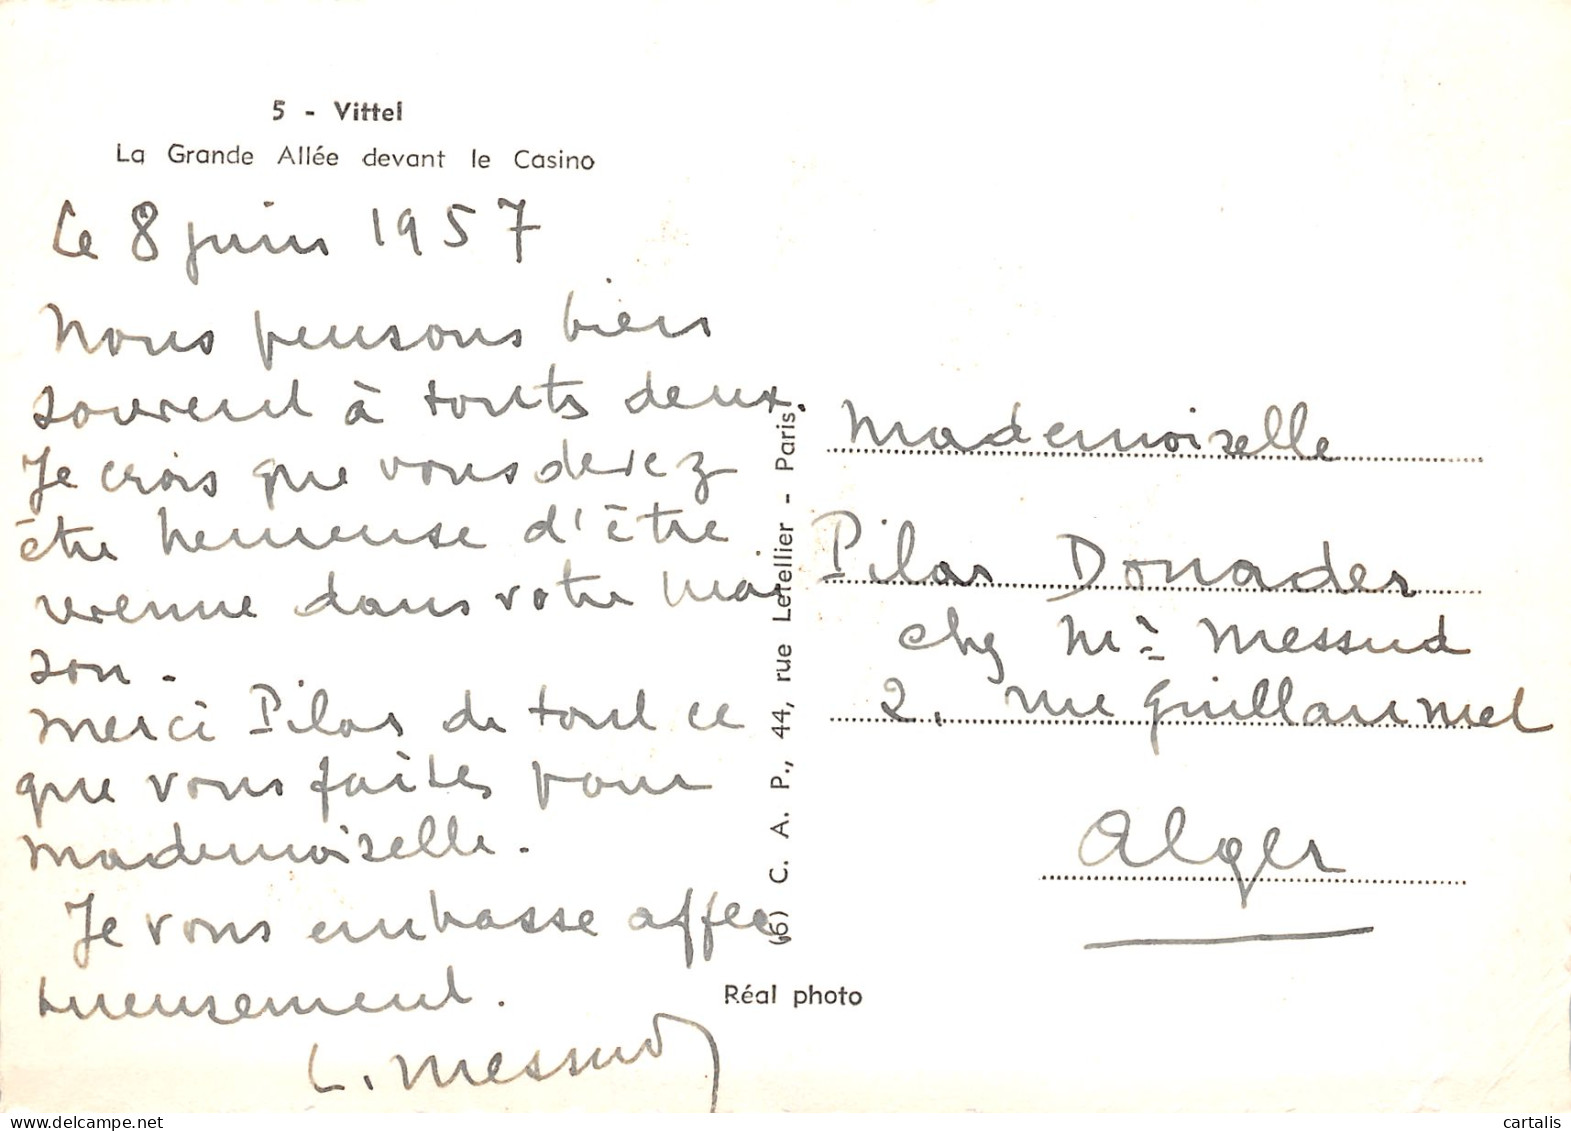 5 - Vittel
La Grande Allée devant le Casino
Le 8 juin 1957
Nous pensons bien
souvent à toutes deux.
Je crois que vous devez
être heureuse d'être
venue dans votre mai
son.
Merci Pilar de tout ce
que vous faites pour
Mademoiselle.
Je vous embrasse affec
tueusement.
L. Messud
(6) C. A. P., 44, rue Letellier - Paris
Réal photo
Mademoiselle
Pilar Donader
chez Mr Messud
2, rue Guillaumet
Alger
cartalis